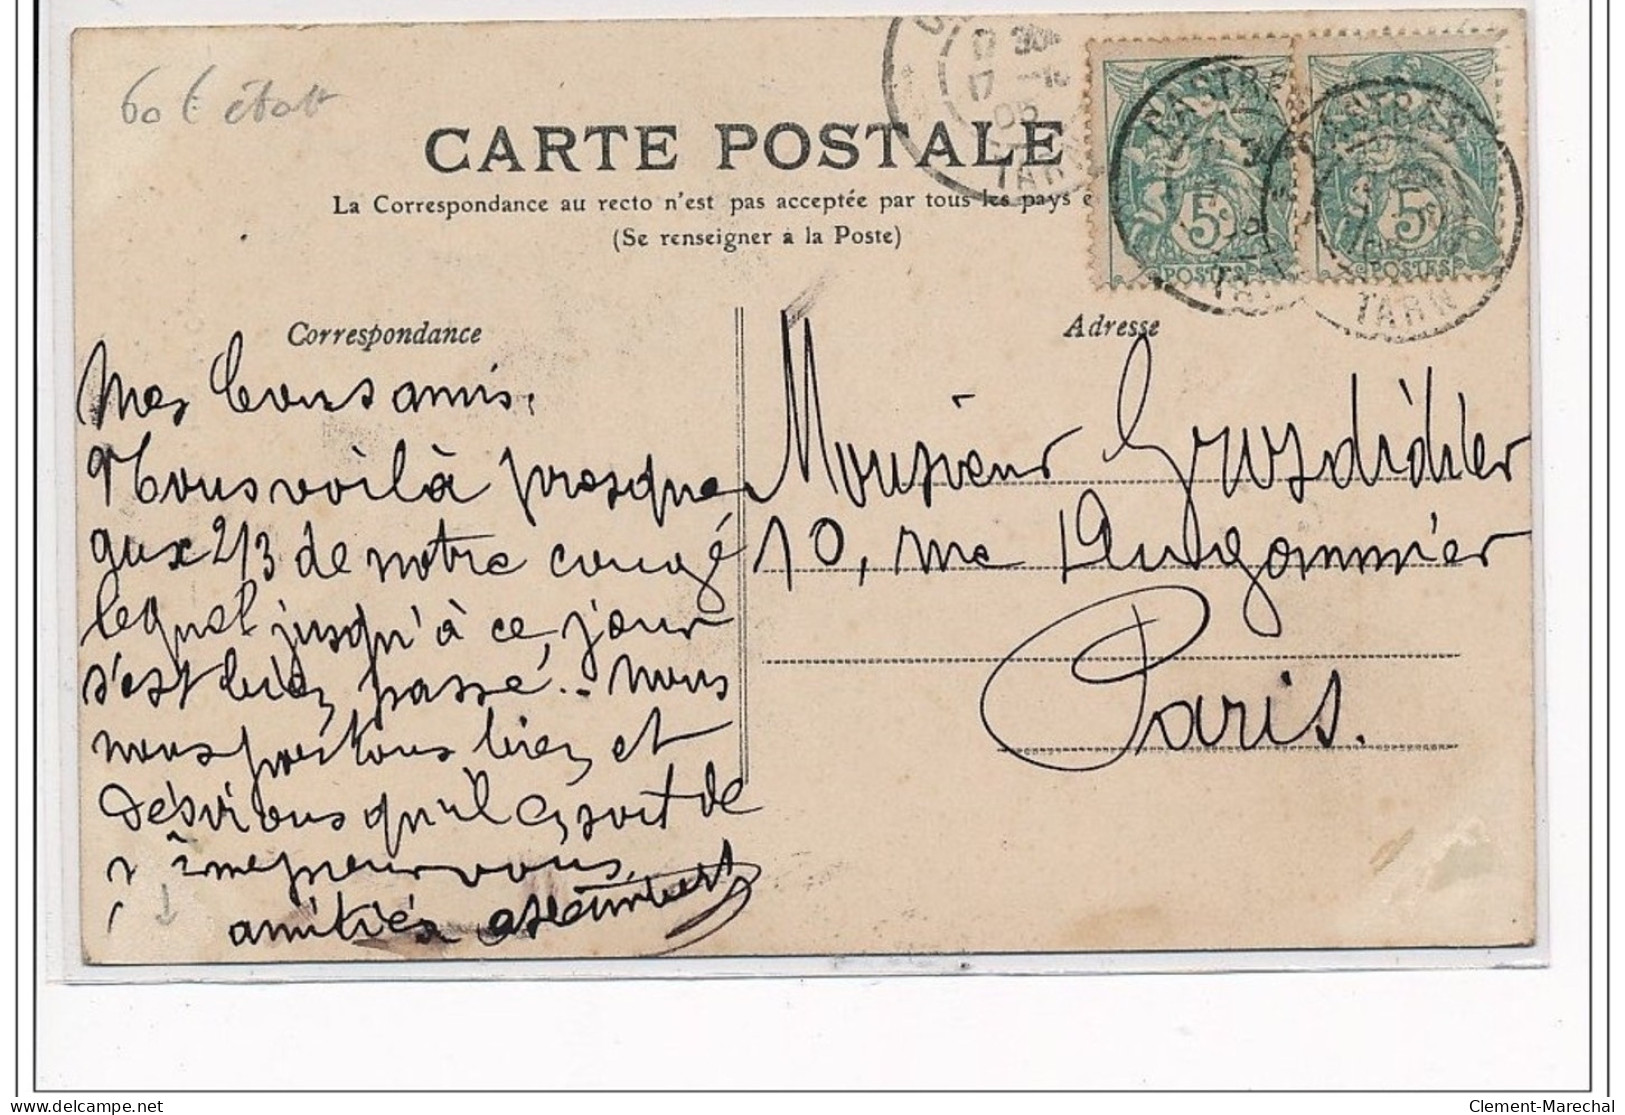 60 €
CARTE POSTALE
La Correspondance au recto n'est pas acceptée par tous les pays é
(Se renseigner à la Poste)
17
TARN
CASTRES
CASTRES
5
5
POSTES
POSTES
TARN
Correspondance
Adresse
Mes Cousamis.
Nous voilà presque
aux 2/3 de notre congé
lequel jusqu'à ce jour
s'est bien passé. - nous
nous portons bien et
désirons qu'il en soit de
même pour vous.
amitiés
Monsieur Grosdidier
10, rue Dugommier
Paris.
Clement-Marechal